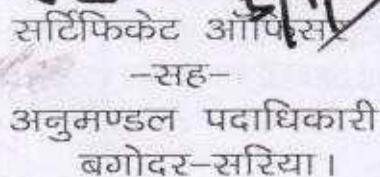 सर्टिफिकेट ऑफिसर
–सह–
अनुमण्डल पदाधिकारी
बगोदर–सरिया।